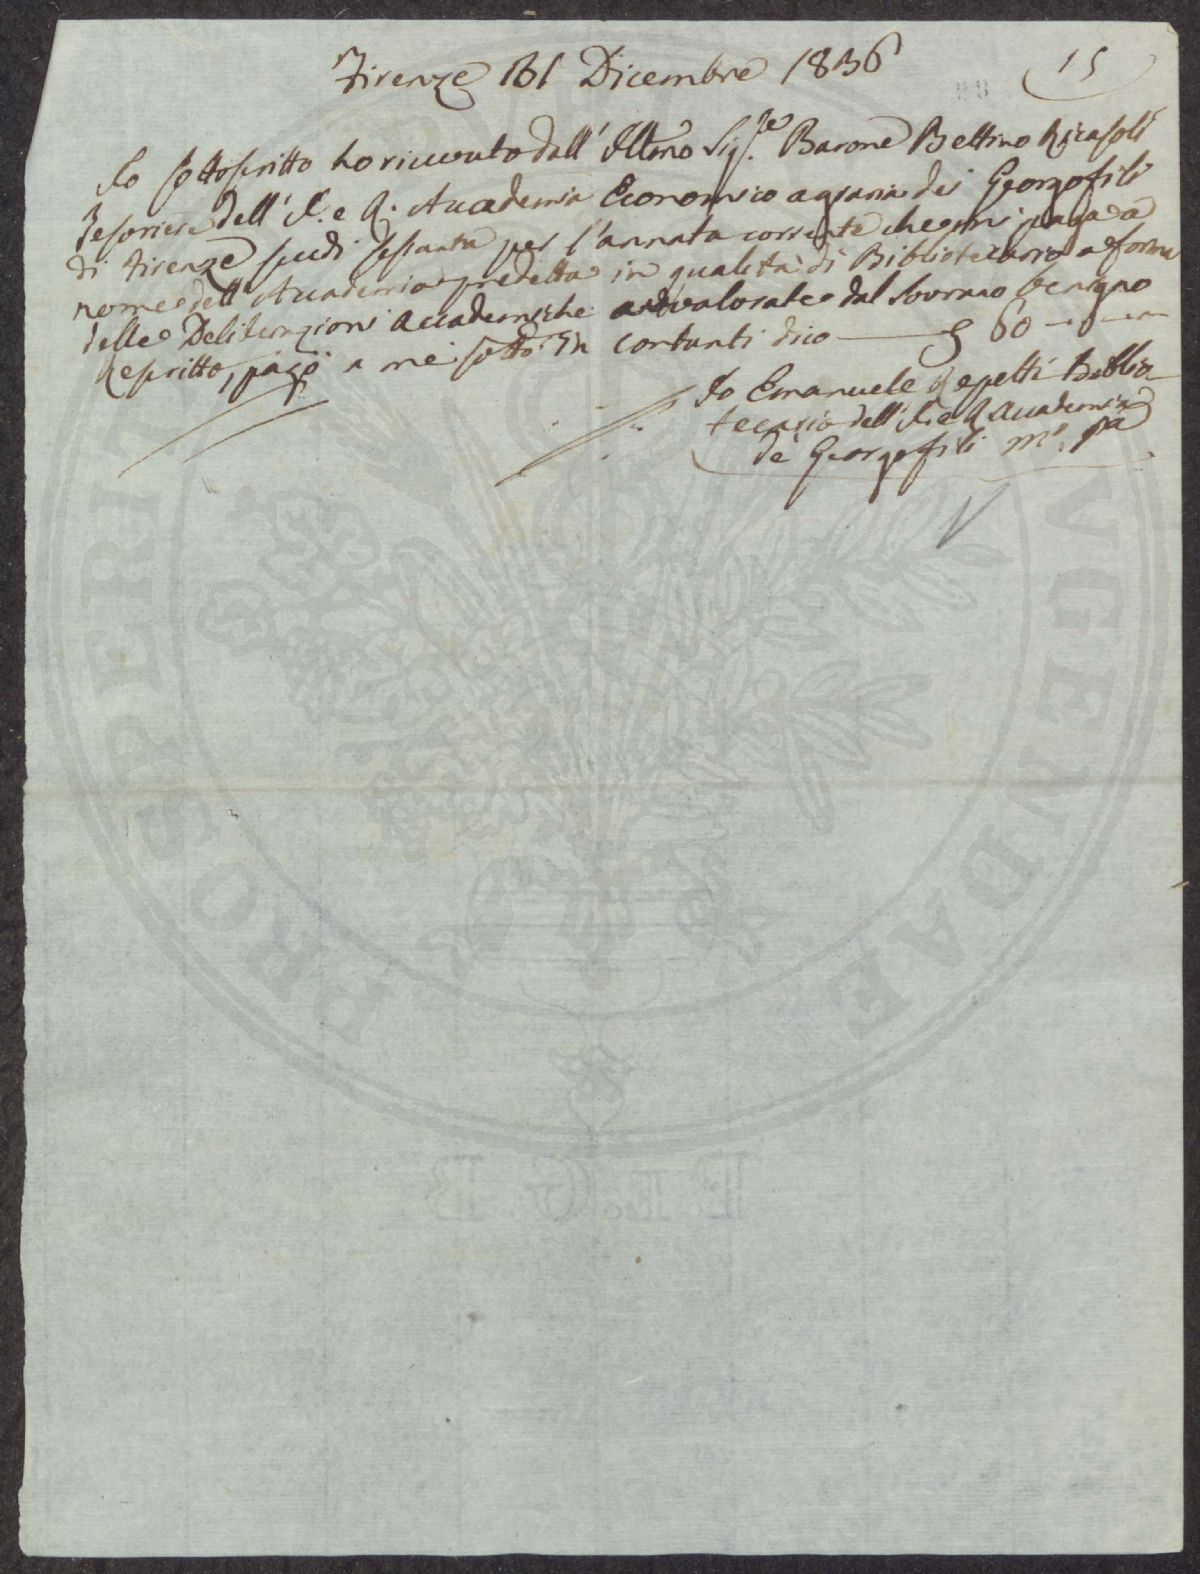 Firenze 31 Dicembre 1836
15
Io sottoscritto ho ricevuto dall' Illmo Sigre. Barone Bettino Ricasoli
Tesoriere dell' I. e R. Accademia Economico agraria dei Georgofili
di Firenze scudi sessanta per l'annata corrente che mi paga a
nome dell' Accademia predetta in qualità di Bibliotecario a forma
delle Deliberazioni Accademiche avvalorate dal Sovrano benigno
Rescritto, pagò a me sotto: in contanti dico 60
Io Emanuele Repetti Biblio
tecario dell' I. e R Accademia
de Georgofili mo. pa
PROSPERITATI AVGENDAE